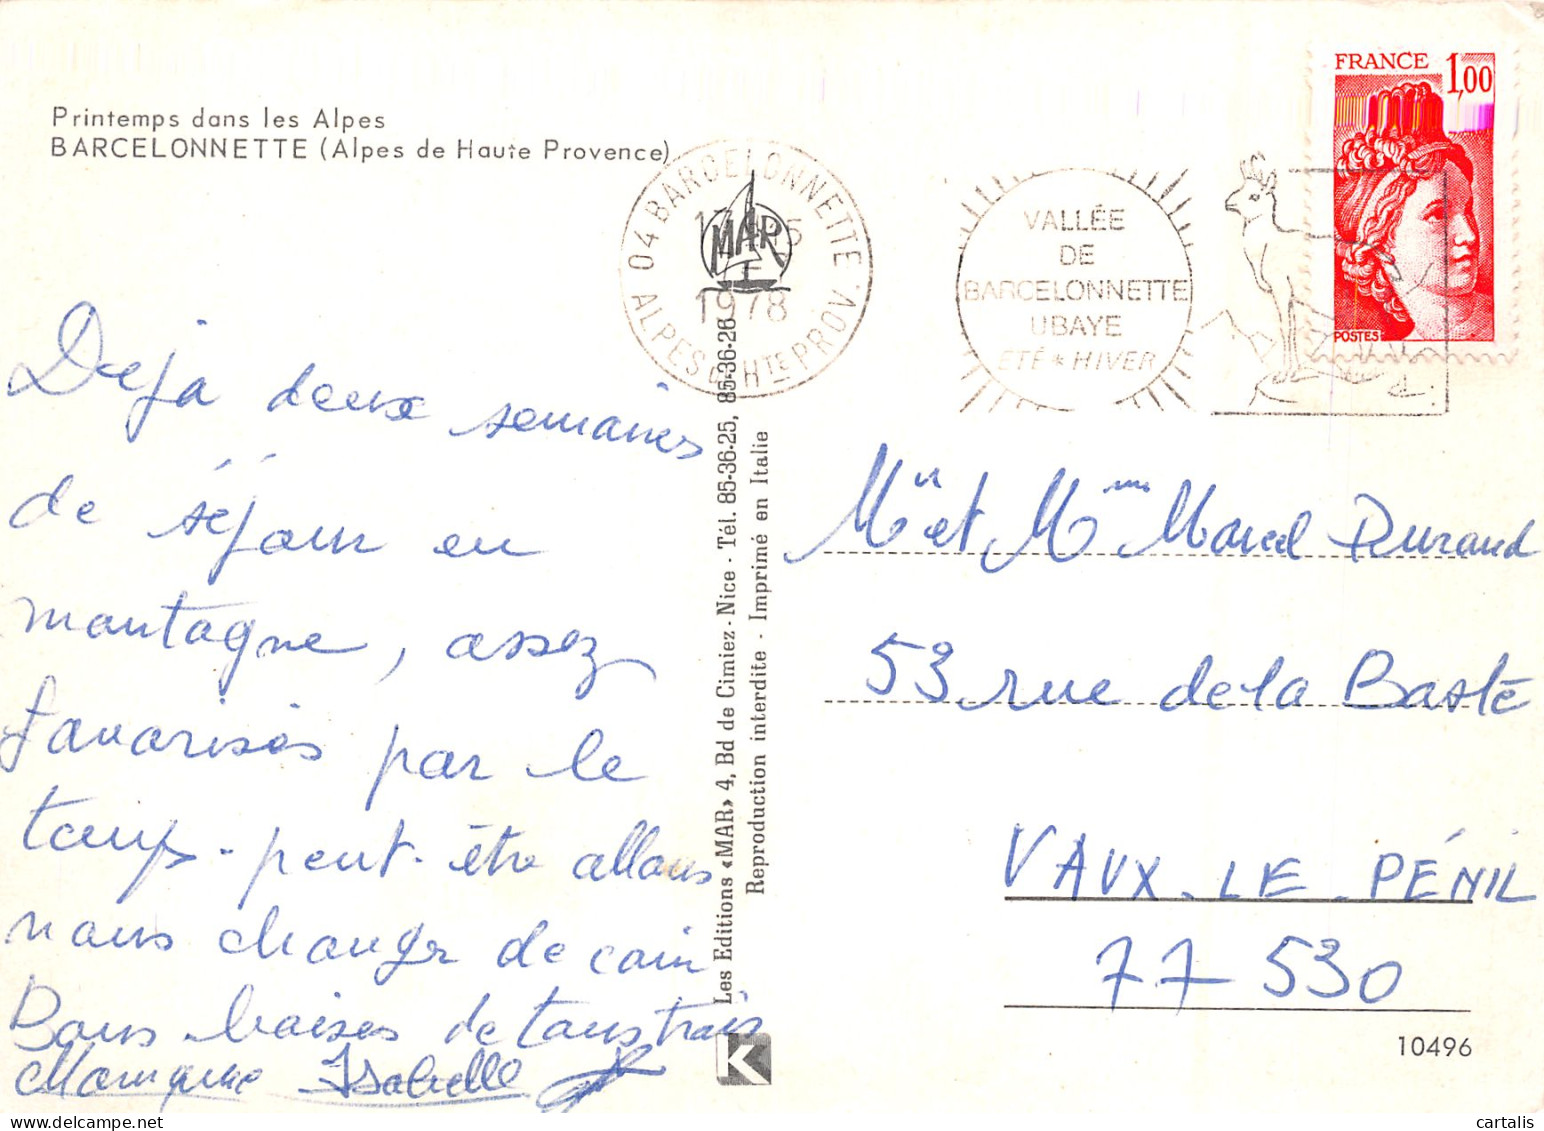 Printemps dans les Alpes
BARCELONNETTE (Alpes de Haute Provence)
04 BARCELONNETTE
ALPES de Hte PROV.
1978
MAR
VALLÉE
DE
BARCELONNETTE
UBAYE
ETÉ * HIVER
FRANCE 1,00
POSTES
Déjà deux semaines
de séjour en
montagne, assez
favorisés par le
temps - peut-être allons
nous changer de coin
Bons baisers de tous trois
Isabelle
Les Editions «MAR» 4, Bd de Cimiez - Nice - Tél. 85-36-25, 85-36-26
Reproduction interdite - Imprimé en Italie
K
Mr et Mme Marcel Durand
53, rue de la Baste
VAUX-LE-PÉNIL
77530
10496
cartalis